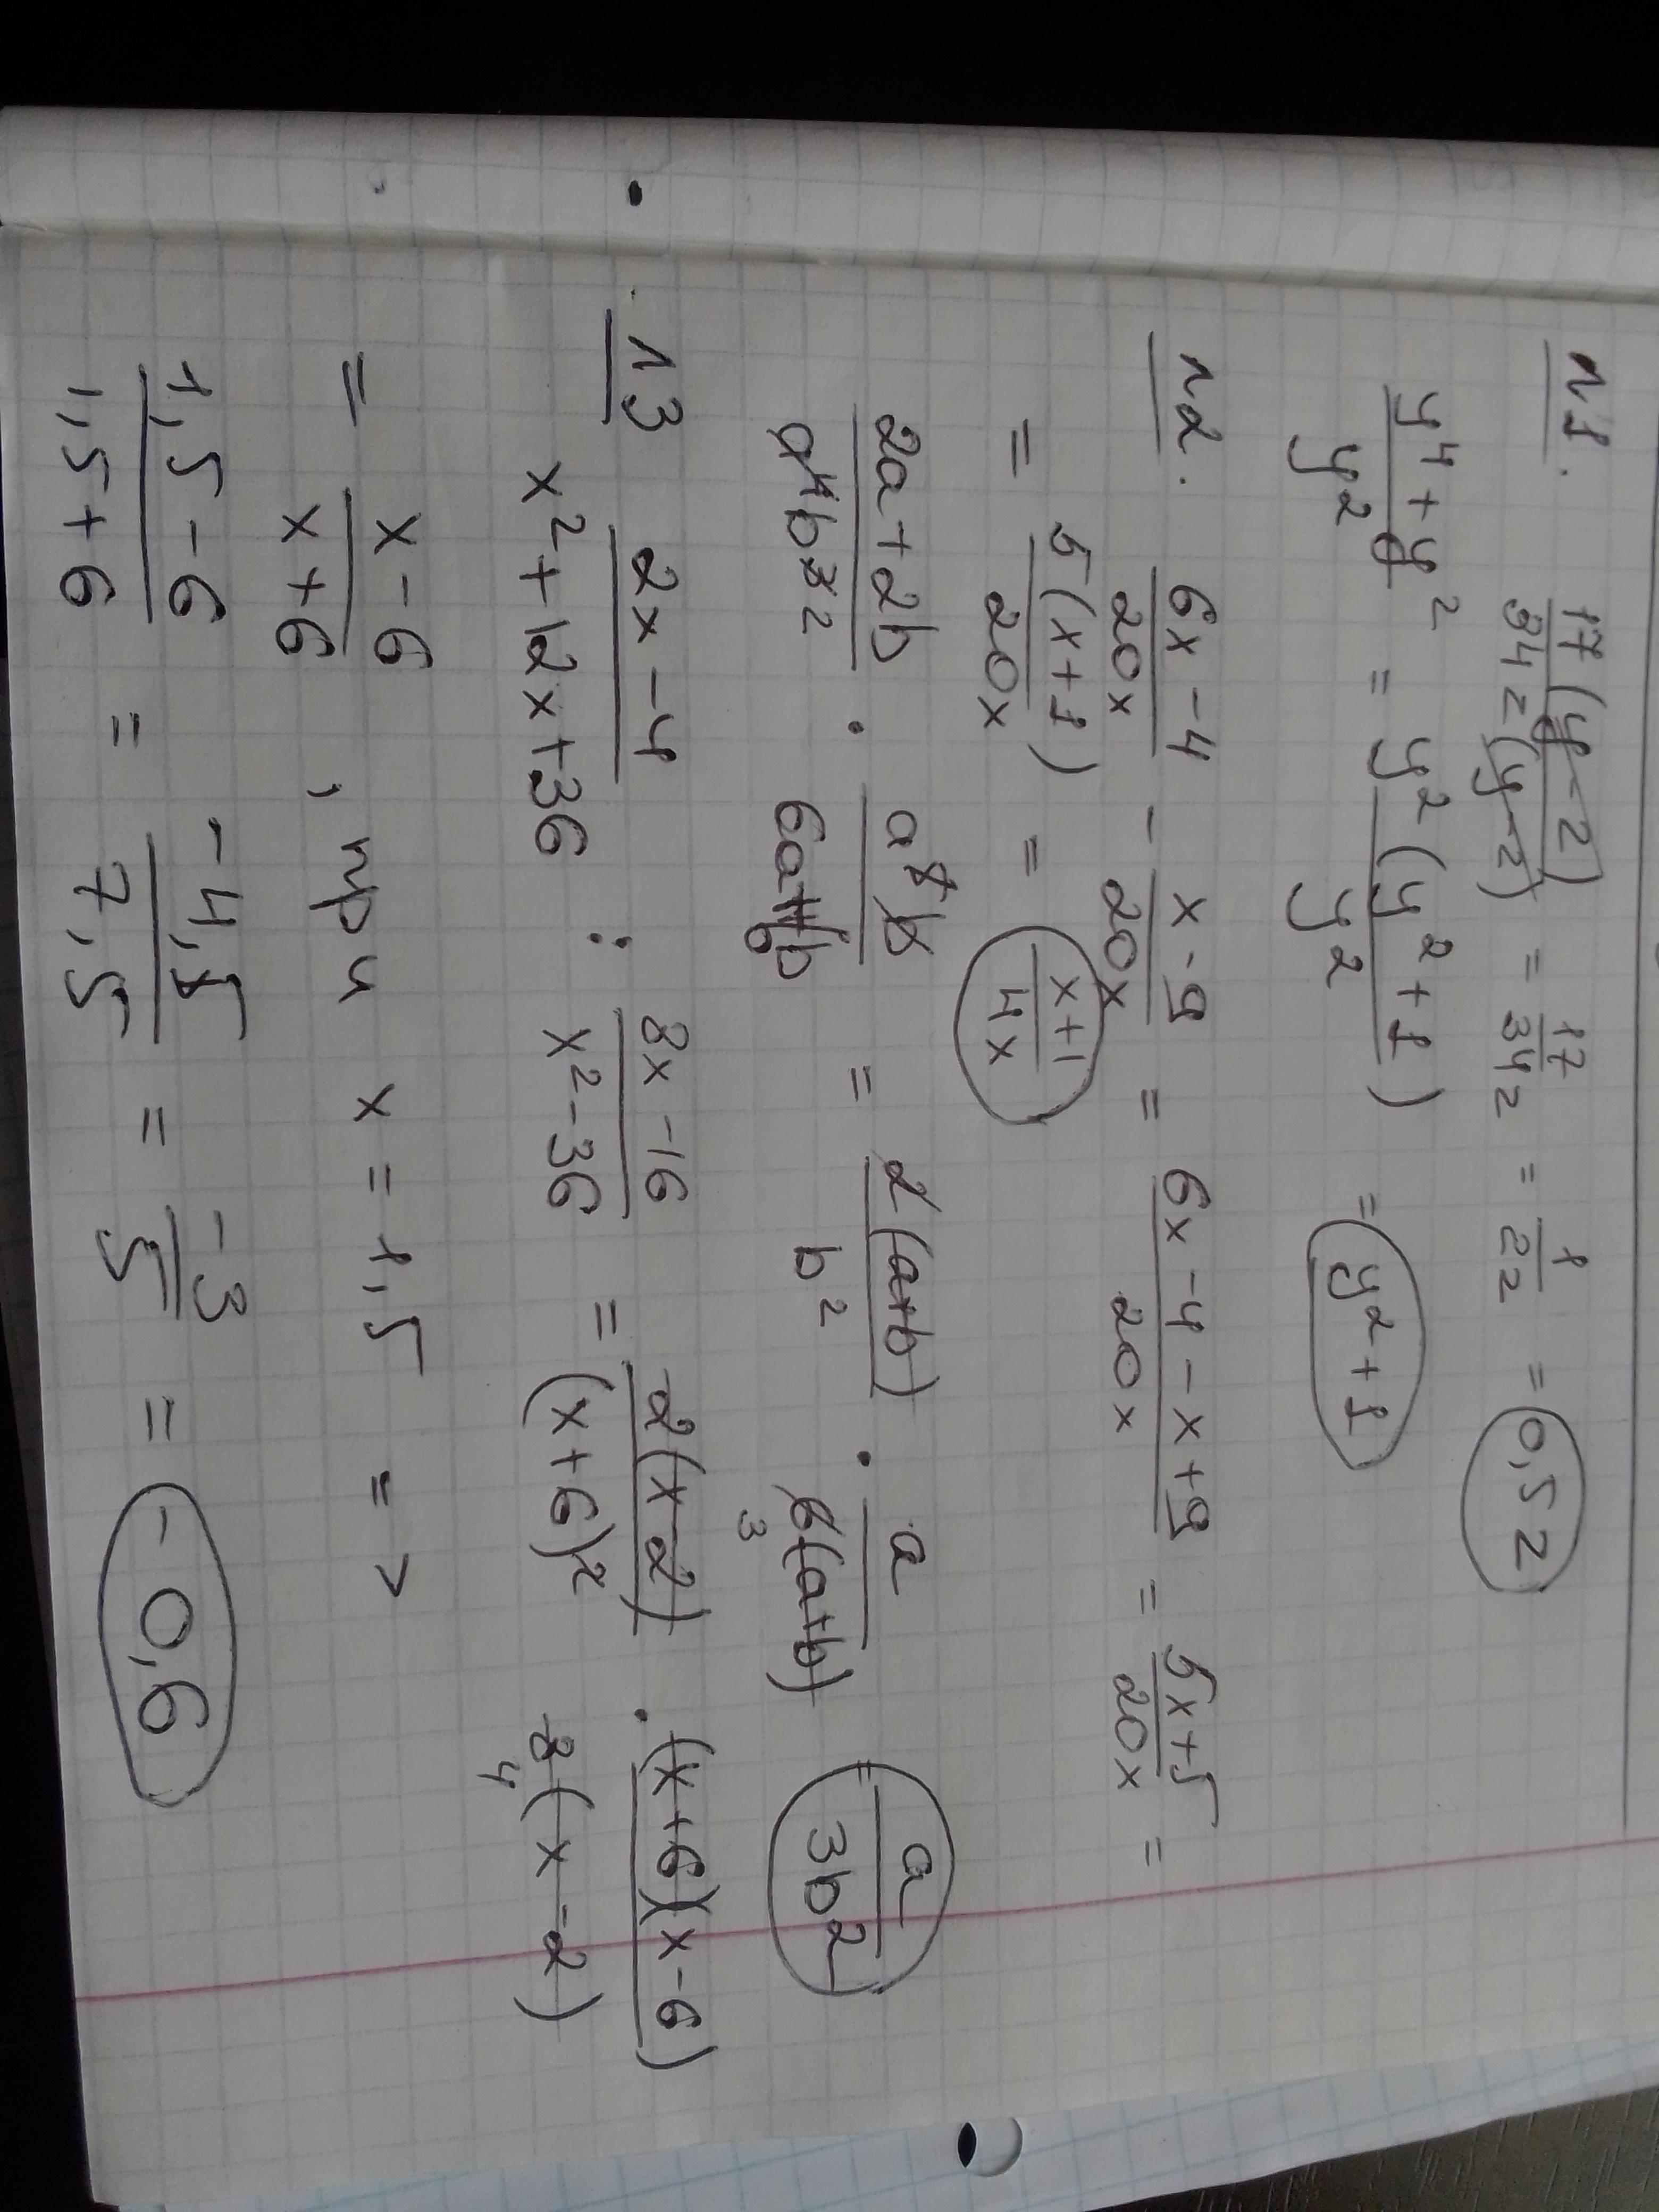 №1. 17(y-z)/34z(y-z) = 17/34z = 1/2z = 0,5z
y⁴+y²/y² = y²(y²+1)/y² = y²+1
№2. 6x-4/20x - x-9/20x = 6x-4-x+9/20x = 5x+5/20x =
= 5(x+1)/20x = x+1/4x
2a+2b/b² · a/6a+6b = 2(a+b)/b² · a/6(a+b) 3 = a/3b²
№3 2x-4/x²+12x+36 : 8x-16/x²-36 = 2(x-2)/(x+6)² · (x+6)(x-6)/8(x-2) 4
= x-6/x+6 , при x = 1,5 =>
1,5-6/1,5+6 = -4,5/7,5 = -3/5 = -0,6